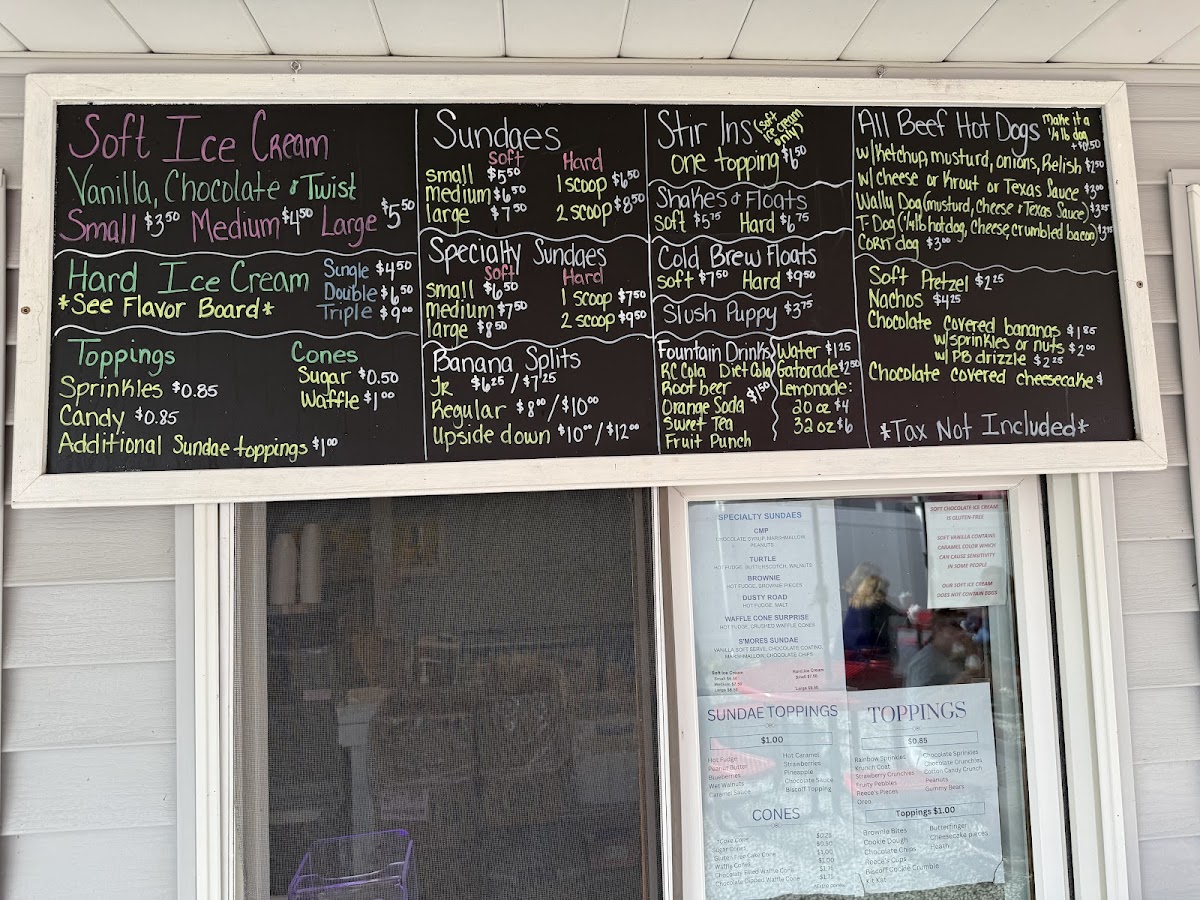 Soft Ice Cream
Vanilla, Chocolate & Twist
Small $3.50 Medium $4.50 Large $5.50
Hard Ice Cream
*See Flavor Board*
Single $4.50
Double $6.50
Triple $9.00
Toppings
Sprinkles $0.85
Candy $0.85
Additional Sundae toppings $1.00
Cones
Sugar $0.50
Waffle $1.00
Sundaes
Soft Hard
small $5.50 1 scoop $6.50
medium $6.50
large $7.50 2 scoop $8.50
Specialty Sundaes
Soft Hard
small $6.50 1 scoop $7.50
medium $7.50
large $8.50 2 scoop $9.50
Banana Splits
Jr $6.25 / $7.25
Regular $8.00 / $10.00
Upside down $10.00 / $12.00
Stir Ins (soft ice cream only)
one topping $6.50
Shakes & Floats
Soft $5.75 Hard $6.75
Cold Brew Floats
soft $7.50 Hard $9.50
Slush Puppy $3.75
Fountain Drinks
RC Cola Diet Cola
Root beer $1.50
Orange Soda
Sweet Tea
Fruit Punch
Water $1.25
Gatorade $2.50
Lemonade:
20 oz $4
32 oz $6
All Beef Hot Dogs
make it a
1/4 lb dog
+$0.50
w/ Ketchup, musturd, onions, Relish $2.50
w/ cheese or Krout or Texas Sauce $3.00
Wally Dog (musturd, Cheese & Texas Sauce) $3.25
T-Dog (1/4 lb hotdog, Cheese, crumbled bacon) $3.75
Corn dog $3.00
Soft Pretzel $2.25
Nachos $4.25
Chocolate Covered bananas $1.85
w/ sprinkles or nuts $2.00
w/ PB drizzle $2.25
Chocolate covered cheesecake $
*Tax Not Included*
SPECIALTY SUNDAES
CMP
CHOCOLATE SYRUP, MARSHMALLOW,
PEANUTS
TURTLE
HOT FUDGE, BUTTERSCOTCH, WALNUTS
BROWNIE
HOT FUDGE, BROWNIE PIECES
DUSTY ROAD
HOT FUDGE, MALT
WAFFLE CONE SURPRISE
HOT FUDGE, CRUSHED WAFFLE CONES
S'MORES SUNDAE
VANILLA SOFT SERVE, CHOCOLATE COATING,
MARSHMALLOW, CHOCOLATE CHIPS
Soft Ice Cream Hard Ice Cream
Small $6.50 Small $7.50
Medium $7.50
Large $8.50 Large $9.50
SOFT CHOCOLATE ICE CREAM
IS GLUTEN-FREE
SOFT VANILLA CONTAINS
CARAMEL COLOR WHICH
CAN CAUSE SENSITIVITY
IN SOME PEOPLE
OUR SOFT ICE CREAM
DOES NOT CONTAIN EGGS
SUNDAE TOPPINGS
$1.00
Hot Fudge
Peanut Butter
Blueberries
Wet Walnuts
Caramel Sauce
Hot Caramel
Strawberries
Pineapple
Chocolate Sauce
Biscoff Topping
CONES
Cake Cone $0.25
Sugar Cones $0.50
Gluten Free Cake Cone $1.00
Waffle Cones $1.00
Chocolate Filled Waffle Cone
Chocolate Dipped Waffle Cone
TOPPINGS
$0.85
Rainbow Sprinkles
Krunch Coat
Strawberry Crunchies
Fruity Pebbles
Reece's Pieces
Oreo
Chocolate Sprinkles
Chocolate Crunchies
Cotton Candy Crunch
Peanuts
Gummy Bears
Toppings $1.00
Brownie Bites
Cookie Dough
Chocolate Chips
Reece's Cups
Biscoff Cookie Crumble
Kit Kat
Butterfinger
Cheesecake pieces
Heath